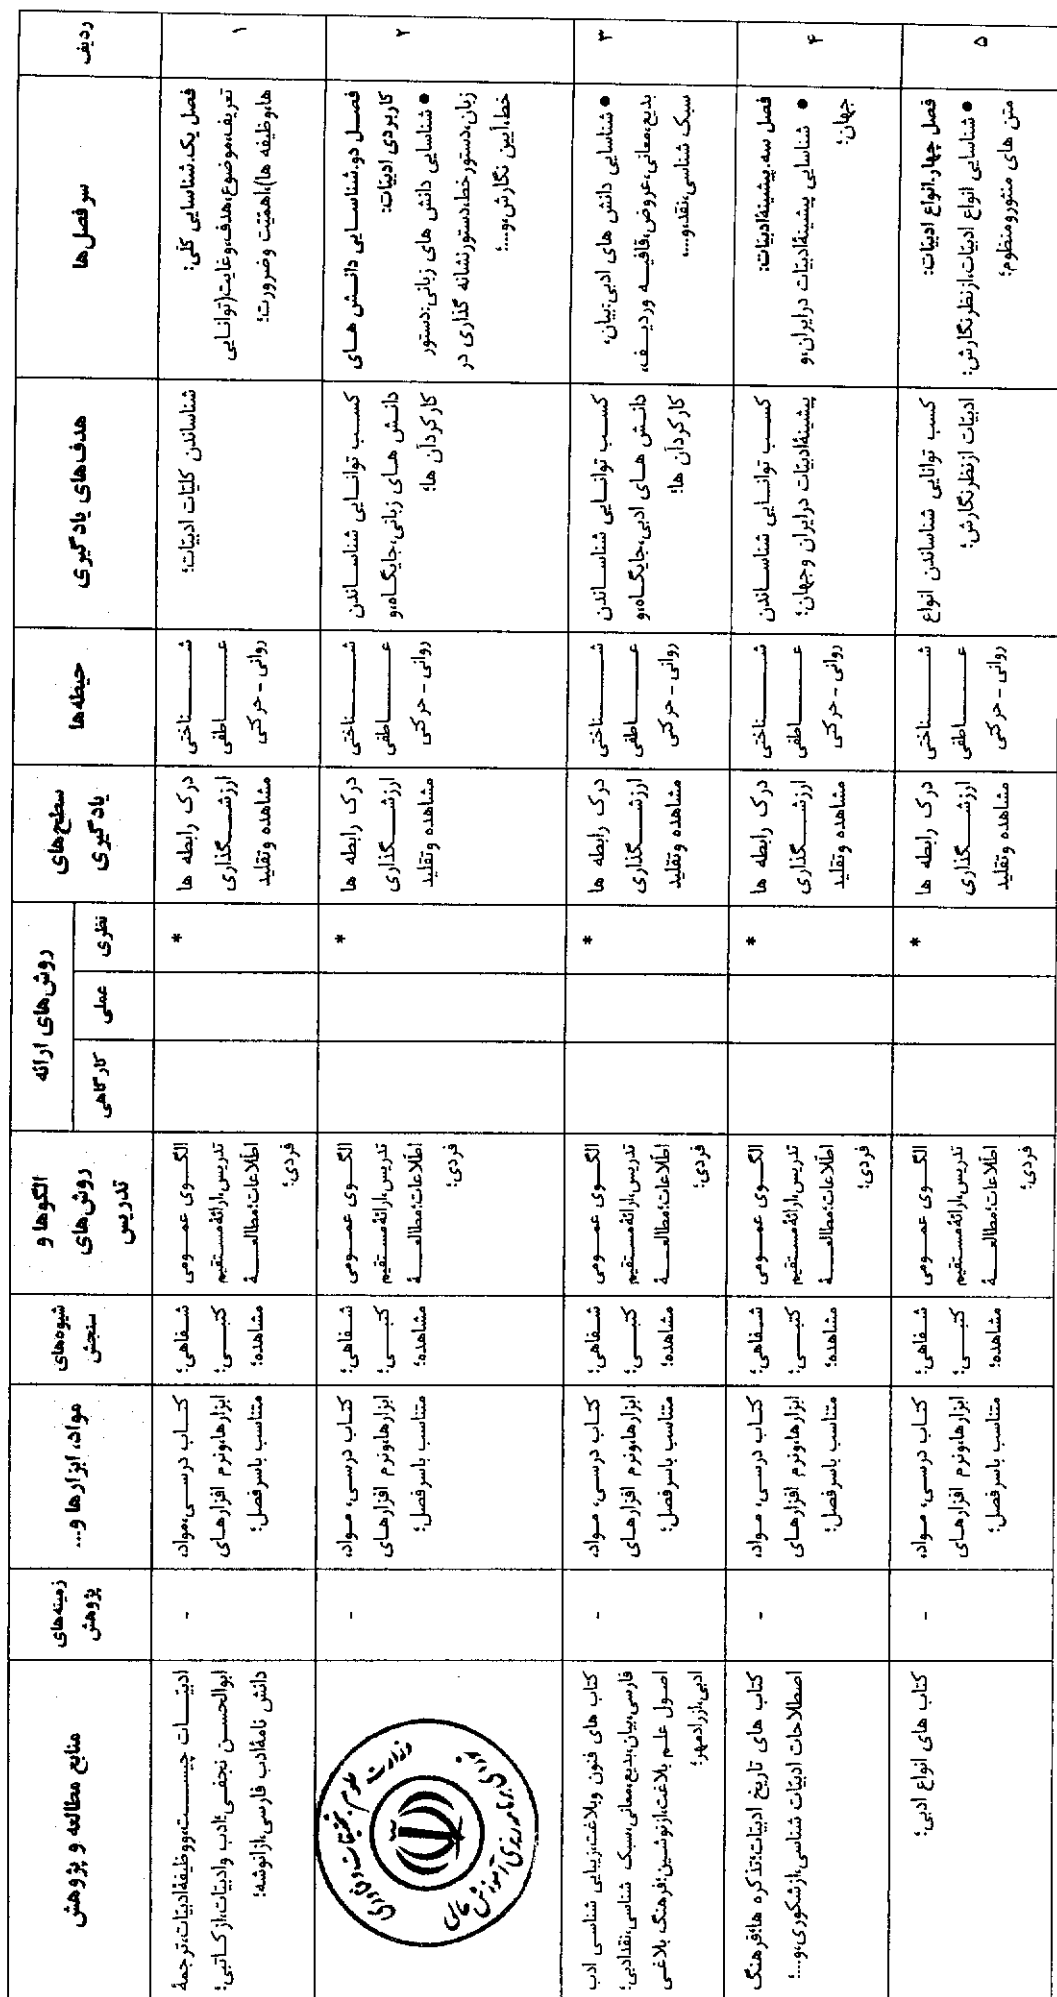 ردیف
سرفصل‌ها
هدف‌های یادگیری
حیطه‌ها
سطح‌های
یادگیری
روش‌های ارائه
نظری
عملی
کارگاهی
الگوها و
روش‌های
تدریس
شیوه‌های
سنجش
مواد، ابزارها و...
زمینه‌های
پژوهش
منابع مطالعه و پژوهش
۱
فصل یک.شناسایی کلی:
تعریف،موضوع،هدف،وغایت(توانایی
ها،وظیفه ها)،اهمیّت وضرورت؛
شناساندن کلیّات ادبیّات؛
شناختی
عاطفی
روانی - حرکتی
درک رابطه ها
ارزشگذاری
مشاهده وتقلید
*
الگوی عمومی
تدریس،ارائۀمستقیم
اطّلاعات؛مطالعۀ
فردی؛
شفاهی؛
کتبی؛
مشاهده؛
کتاب درسی،مواد،
ابزارها،ونرم افزارهای
متناسب باسرفصل؛
-
ادبیّات چیست،ووظیفۀادبیّات،ترجمۀ
ابوالحسن نجفی؛ادب وادبیّات،ازکاتبی؛
دانش نامۀادب فارسی،ازانوشه؛
۲
فصل دو.شناسایی دانش های
کاربردی ادبیّات:
● شناسایی دانش های زبانی:دستور
زبان،دستورخط،دستورنشانه گذاری در
خط،آیین نگارش،و...؛
کسب توانایی شناساندن
دانش های زبانی،جایگاه،و
کارکردآن ها؛
شناختی
عاطفی
روانی - حرکتی
درک رابطه ها
ارزشگذاری
مشاهده وتقلید
*
الگوی عمومی
تدریس،ارائۀمستقیم
اطّلاعات؛مطالعۀ
فردی؛
شفاهی؛
کتبی؛
مشاهده؛
کتاب درسی، مواد،
ابزارها،ونرم افزارهای
متناسب باسرفصل؛
-
وزارت علوم، تحقیقات و فناوری
برنامه ریزی آموزش عالی
۳
● شناسایی دانش های ادبی:بیان،
بدیع،معانی،عروض،قافیه وردیف،
سبک شناسی،نقد،و...
کسب توانایی شناساندن
دانش های ادبی،جایگاه،و
کارکردآن ها؛
شناختی
عاطفی
روانی - حرکتی
درک رابطه ها
ارزشگذاری
مشاهده وتقلید
*
الگوی عمومی
تدریس،ارائۀمستقیم
اطّلاعات؛مطالعۀ
فردی؛
شفاهی؛
کتبی؛
مشاهده؛
کتاب درسی، مواد،
ابزارها،ونرم افزارهای
متناسب باسرفصل؛
-
کتاب های فنون وبلاغت،زیبایی شناسی ادب
فارسی،بیان،بدیع،معانی،سبک شناسی،نقدادبی؛
اصول علم بلاغت،ازنوشین؛فرهنگ بلاغی
ادبی،ازرادمهر؛
۴
فصل سه.پیشینۀادبیّات:
● شناسایی پیشینۀادبیّات درایران،و
جهان:
کسب توانایی شناساندن
پیشینۀادبیّات درایران وجهان؛
شناختی
عاطفی
روانی - حرکتی
درک رابطه ها
ارزشگذاری
مشاهده وتقلید
*
الگوی عمومی
تدریس،ارائۀمستقیم
اطّلاعات؛مطالعۀ
فردی؛
شفاهی؛
کتبی؛
مشاهده؛
کتاب درسی، مواد،
ابزارها،ونرم افزارهای
متناسب باسرفصل؛
-
کتاب های تاریخ ادبیّات؛تذکره ها؛فرهنگ
اصطلاحات ادبیّات شناسی،ازشکوری،و...؛
۵
فصل چهار.انواع ادبیّات:
● شناسایی انواع ادبیّات،ازنظرنگارش:
متن های منثورومنظوم؛
کسب توانایی شناساندن انواع
ادبیّات ازنظرنگارش؛
شناختی
عاطفی
روانی - حرکتی
درک رابطه ها
ارزشگذاری
مشاهده وتقلید
*
الگوی عمومی
تدریس،ارائۀمستقیم
اطّلاعات؛مطالعۀ
فردی؛
شفاهی؛
کتبی؛
مشاهده؛
کتاب درسی، مواد،
ابزارها،ونرم افزارهای
متناسب باسرفصل؛
-
کتاب های انواع ادبی؛